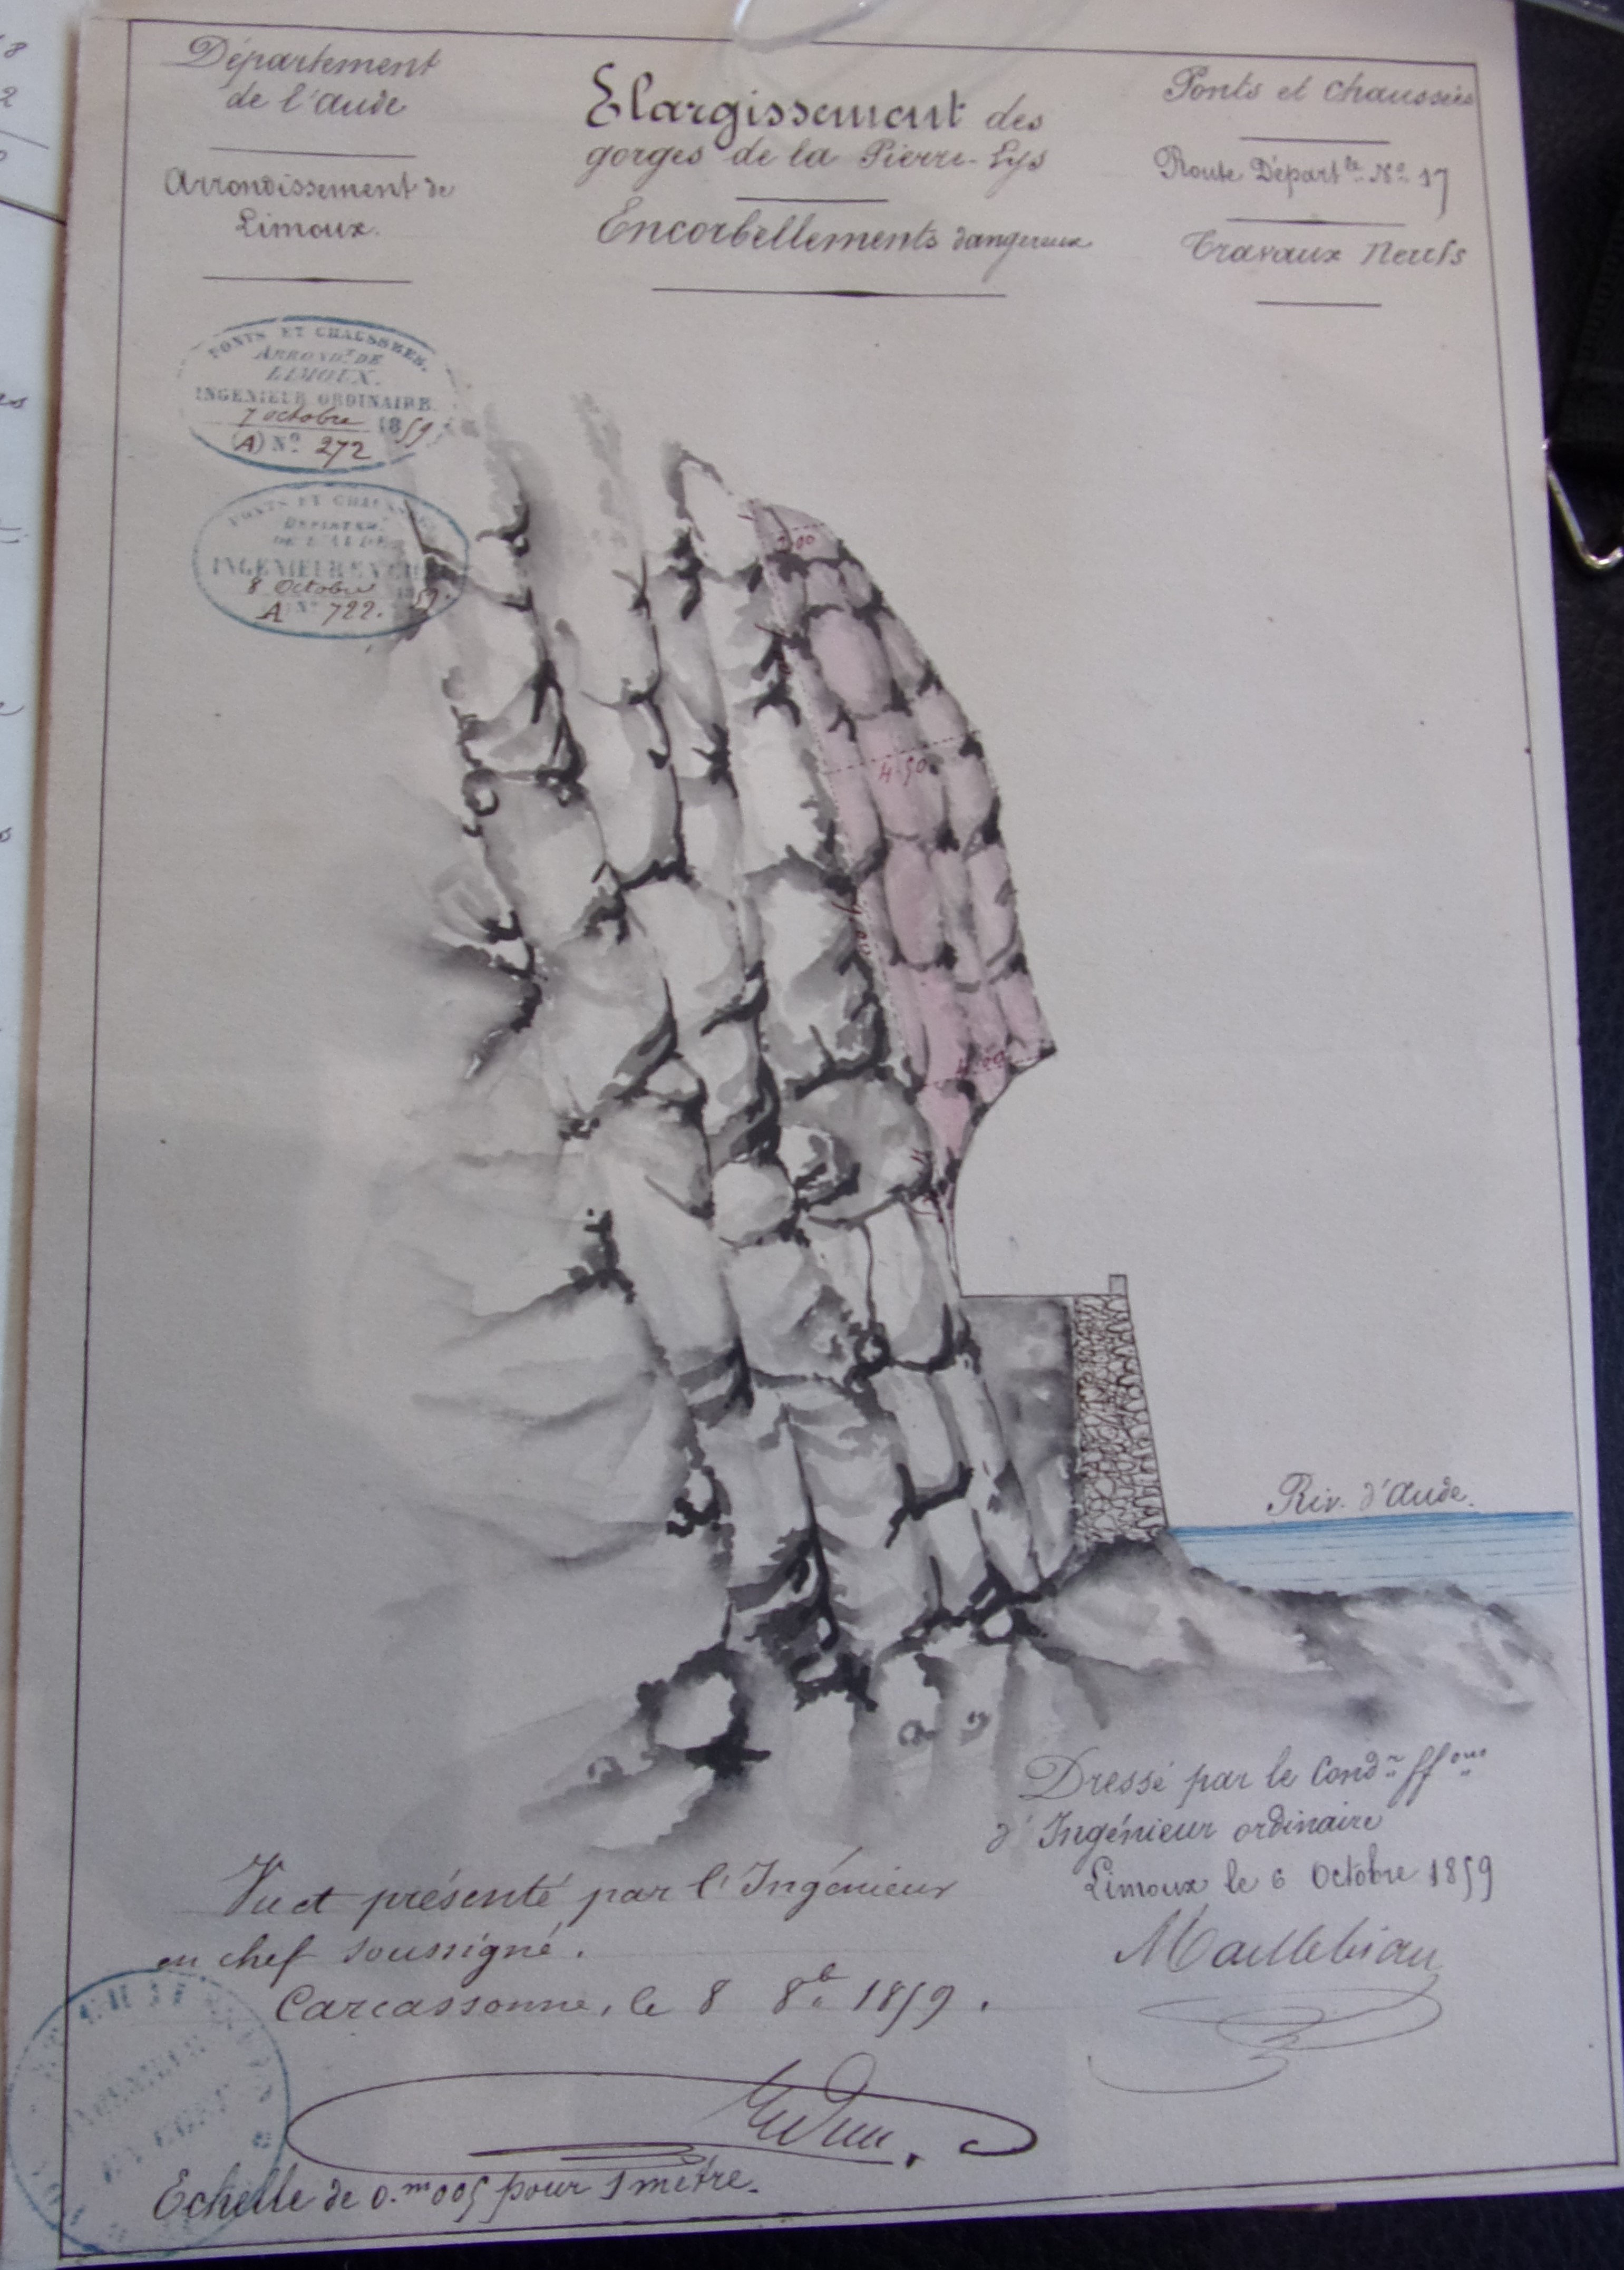 Département
de l'Aude
Arrondissement de
Limoux.
Elargissement des
gorges de la Pierre-Lys
Encorbellements dangereux
Ponts et Chaussées
Route Départ.le N.o 17
Travaux Neufs
PONTS ET CHAUSSÉES.
ARROND.T DE
LIMOUX.
INGÉNIEUR ORDINAIRE
7 octobre 1859.
(A) N.o 272
PONTS ET CHAUSSÉES
DE L'AUDE
INGÉNIEUR EN CHEF
8 Octobre 59.
A N.o 722.
2.00
4.50
4.00
Riv. d'Aude.
Dressé par le Cond.r ff.ons
d'Ingénieur ordinaire
Limoux le 6 Octobre 1859
Maillebiau
Vu et présenté par l'Ingénieur
en chef soussigné.
Carcassonne, le 8 8.b 1859.
Echelle de 0.m005 pour 1 mètre.